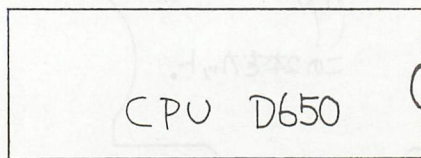 CPU D650